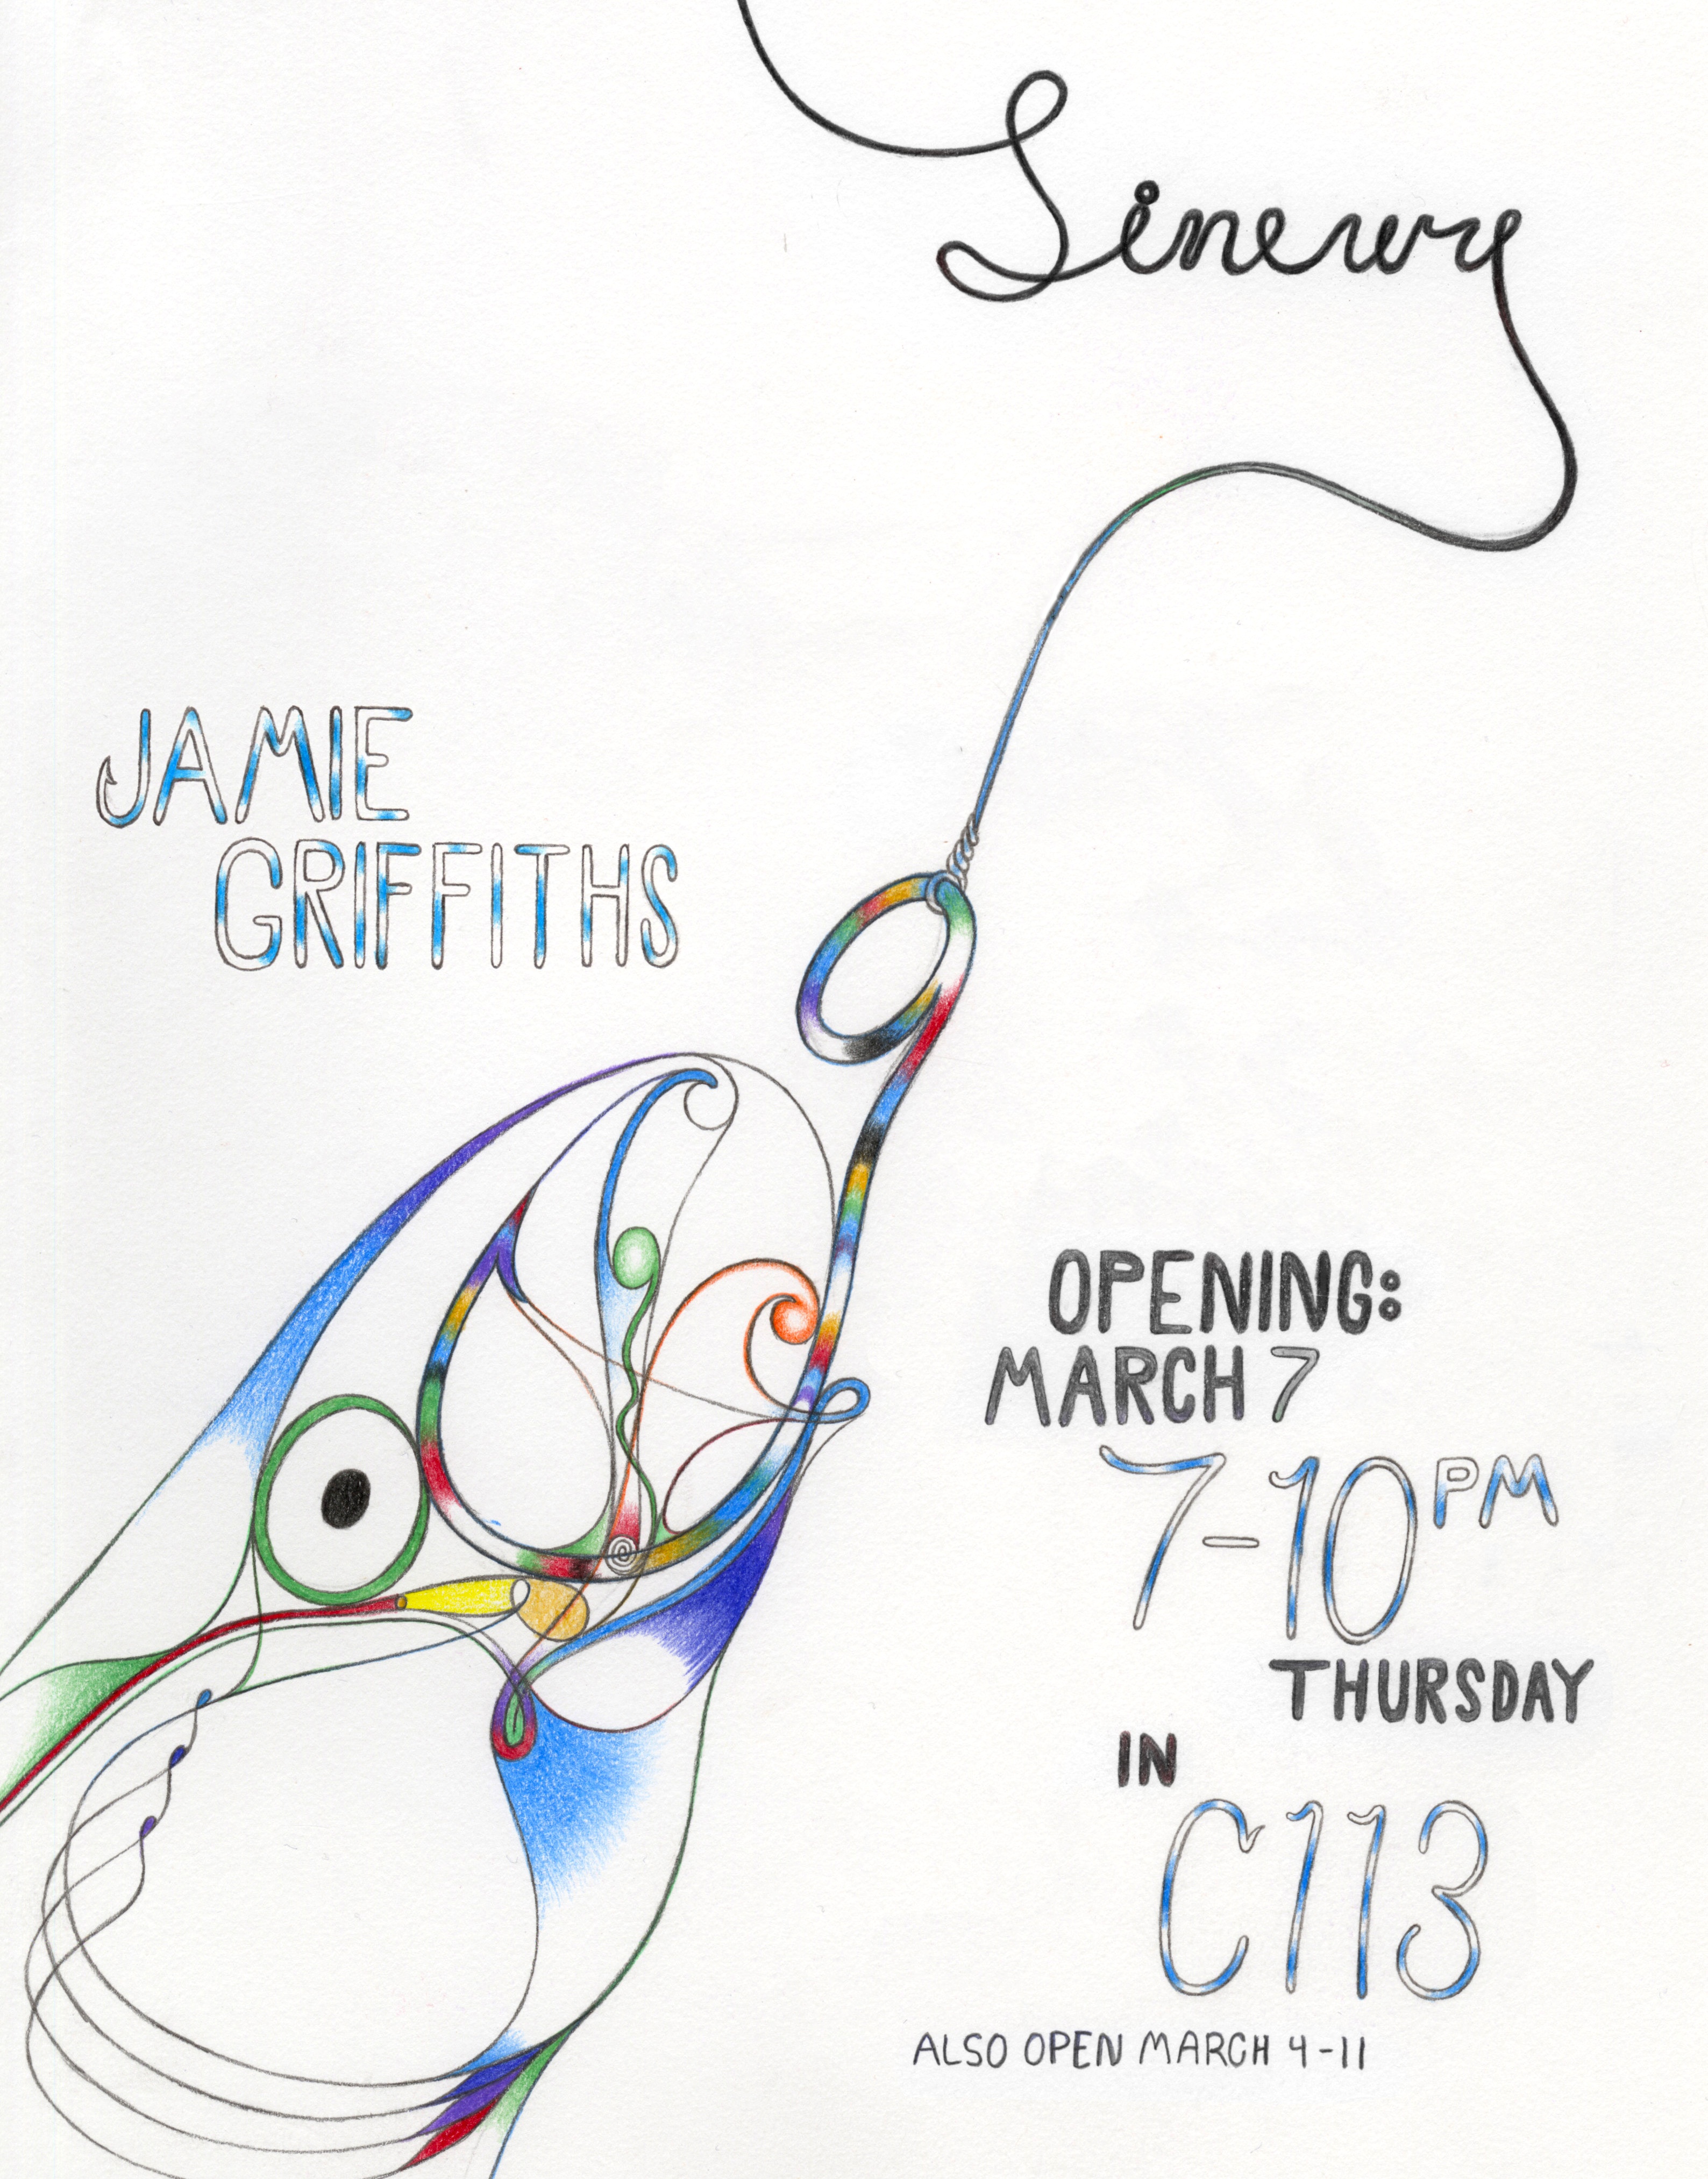 Sinewy
JAMIE
GRIFFITHS
OPENING:
MARCH 7
7-10PM
THURSDAY
IN
C113
ALSO OPEN MARCH 4-11